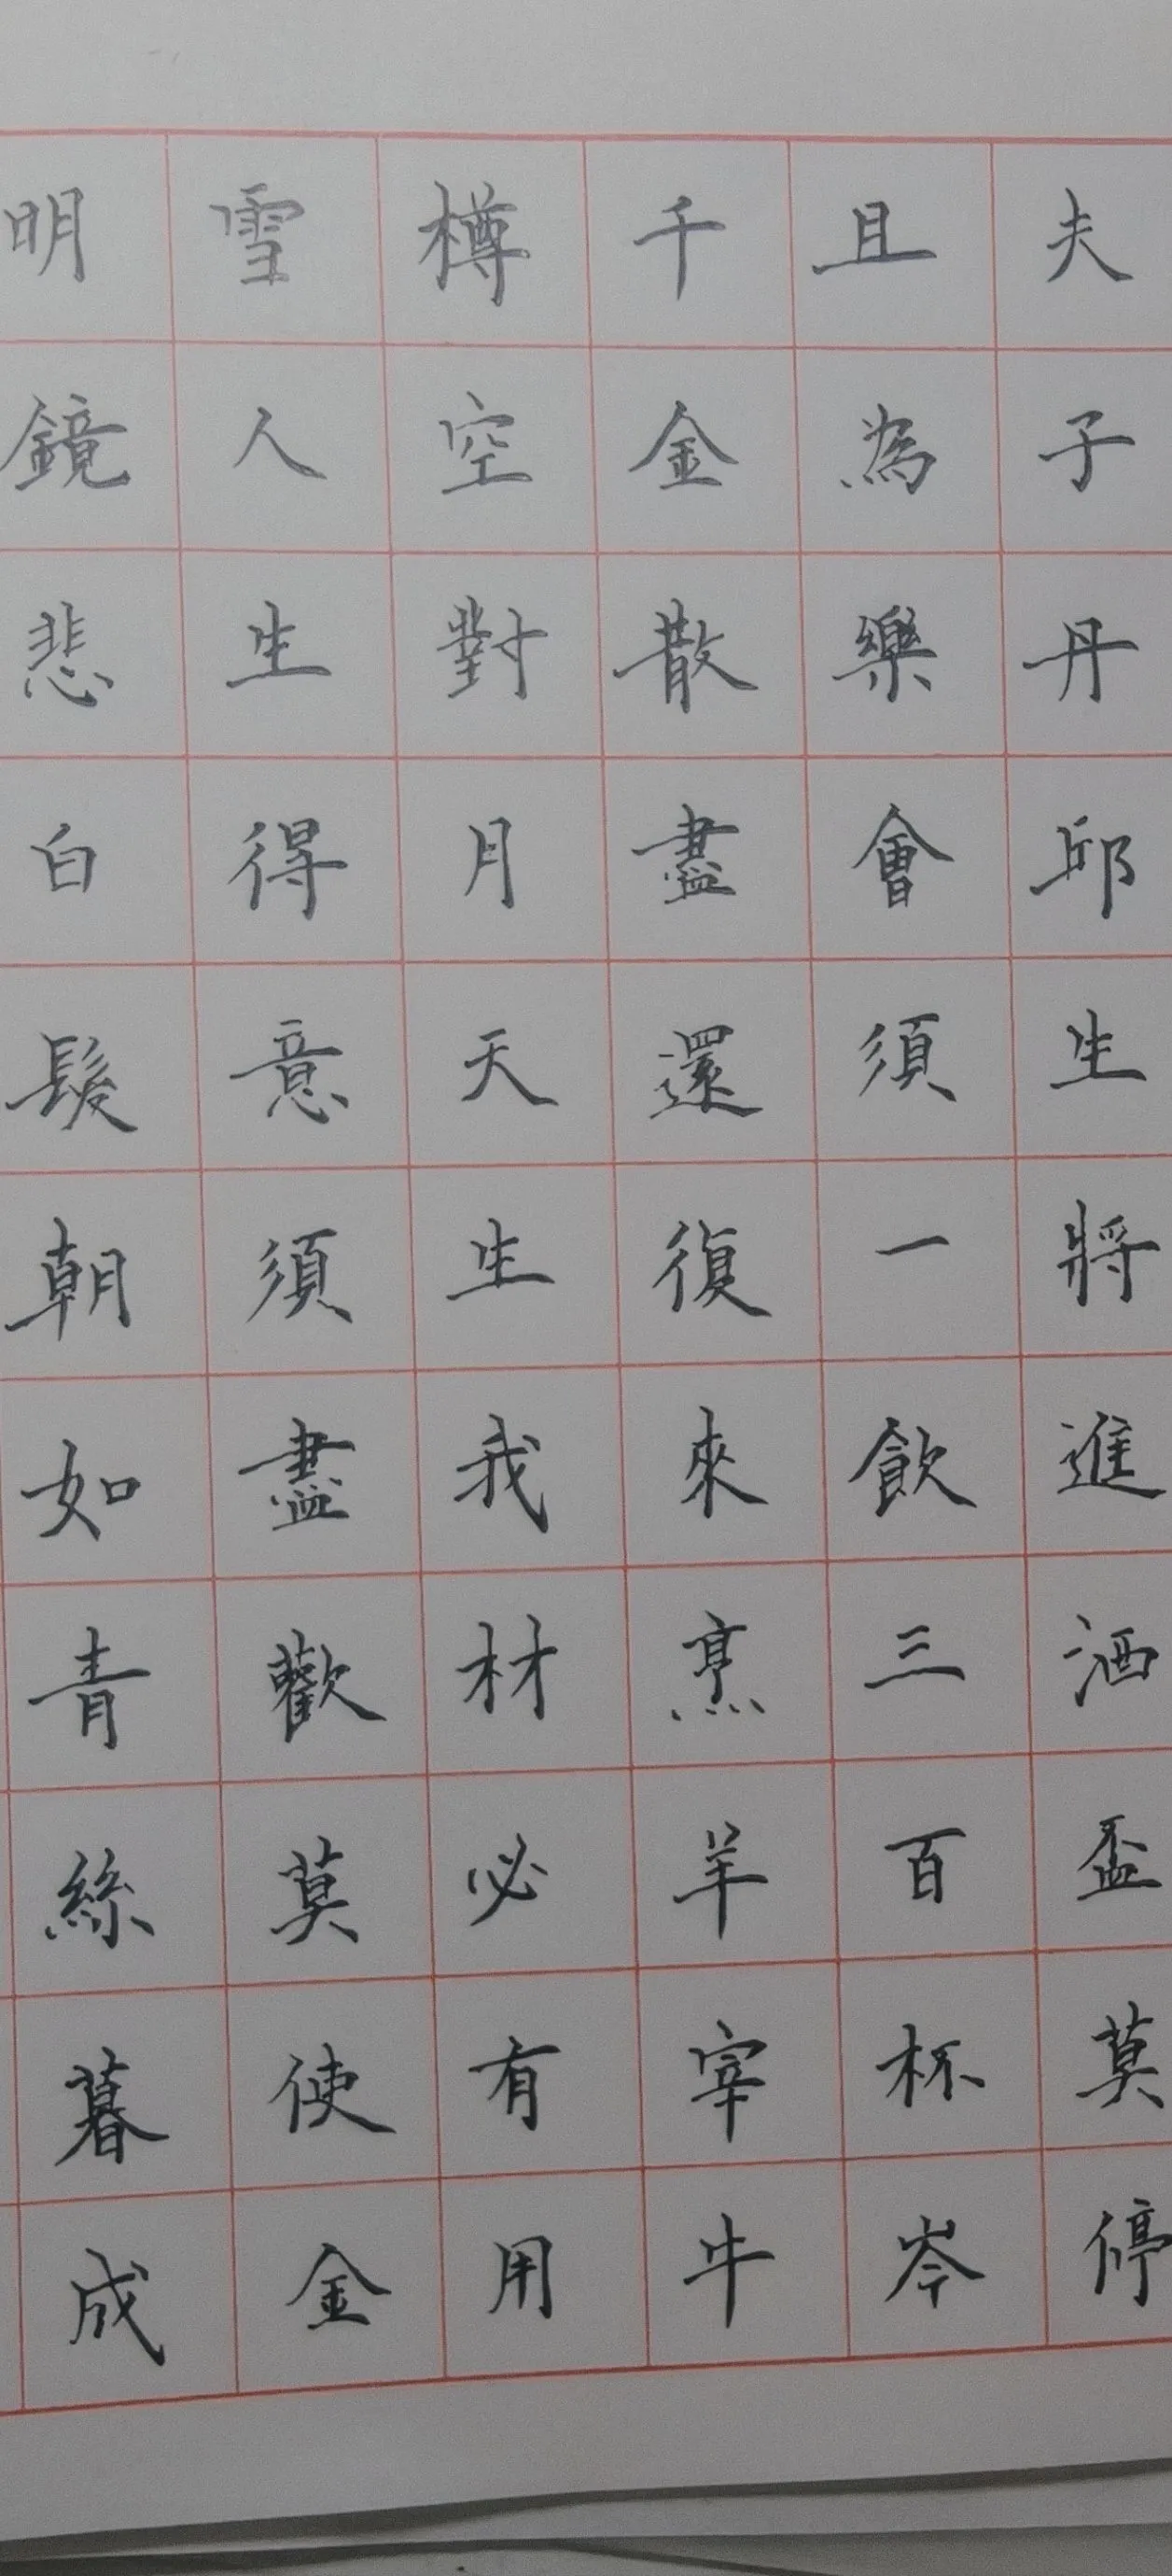 夫子丹邱生將進酒盃莫停
且為樂會須一飲三百杯岑
千金散盡還復來烹羊宰牛
樽空對月天生我材必有用
雪人生得意須盡歡莫使金
明鏡悲白髮朝如青絲暮成